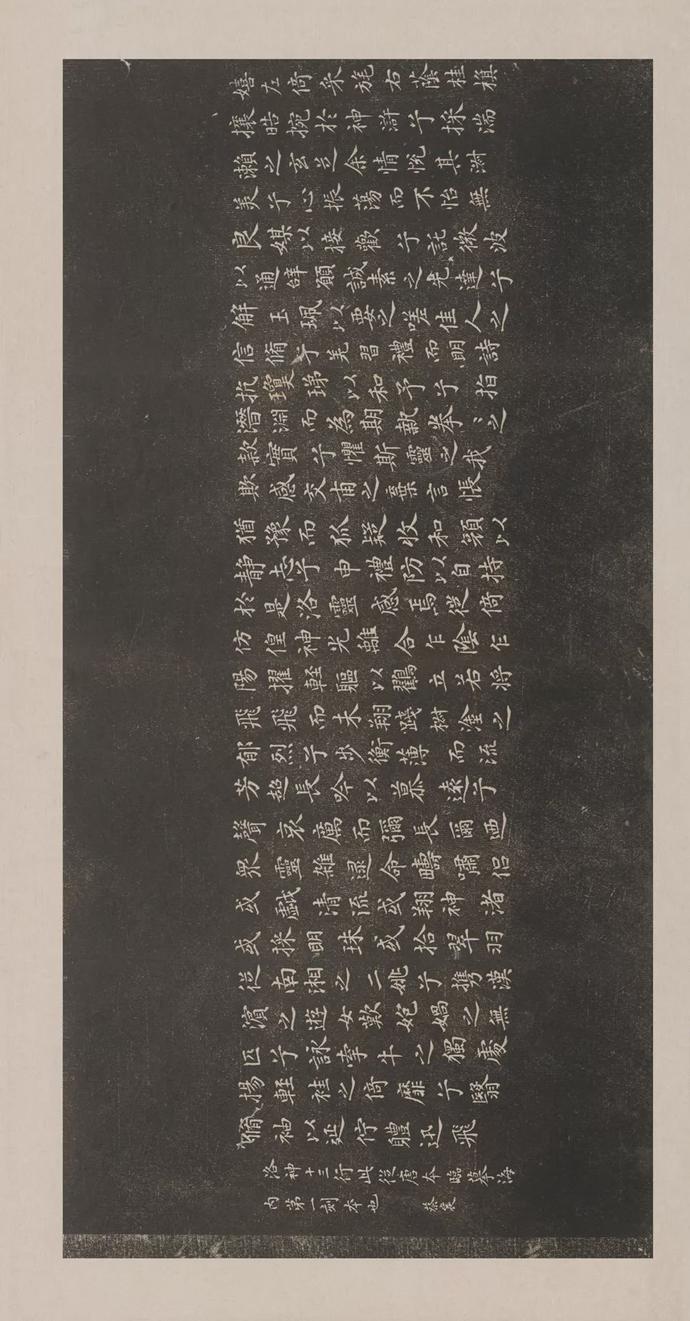 嬉左倚采旄右蔭桂旗
攘皓捥於神滸兮採湍
瀨之玄芝余情悅其淑
美兮心振蕩而不怡無
良媒以接歡兮託微波
以通辝願誠素之先達兮
解玉珮以要之嗟佳人之
信脩兮羌習禮而明詩
抗瓊珶以和予兮指
潛淵而為期執拳〻之
款實兮懼斯靈之我
欺感交甫之棄言悵
猶豫而狐疑收和顏以
靜志兮申禮防以自持
於是洛靈感焉徙倚
仿偟神光離合乍陰乍
陽擢輕軀以鸖立若將
飛飛而未翔踐椒塗之
郁烈兮步衡薄而流
芳超長吟以慕遠兮
聲哀厲而彌長爾迺
眾靈雜遝命疇嘯侶
或戲清流或翔神渚
或採明珠或拾翠羽
從南湘之二姚兮攜漢
濱之遊女歎媧之無
匹兮詠牽牛之獨處
揚輕袿之倚靡兮翳
脩袖以延佇體迅飛
洛神十三行此從唐本臨摹海
內第一刻本也 蔡襄